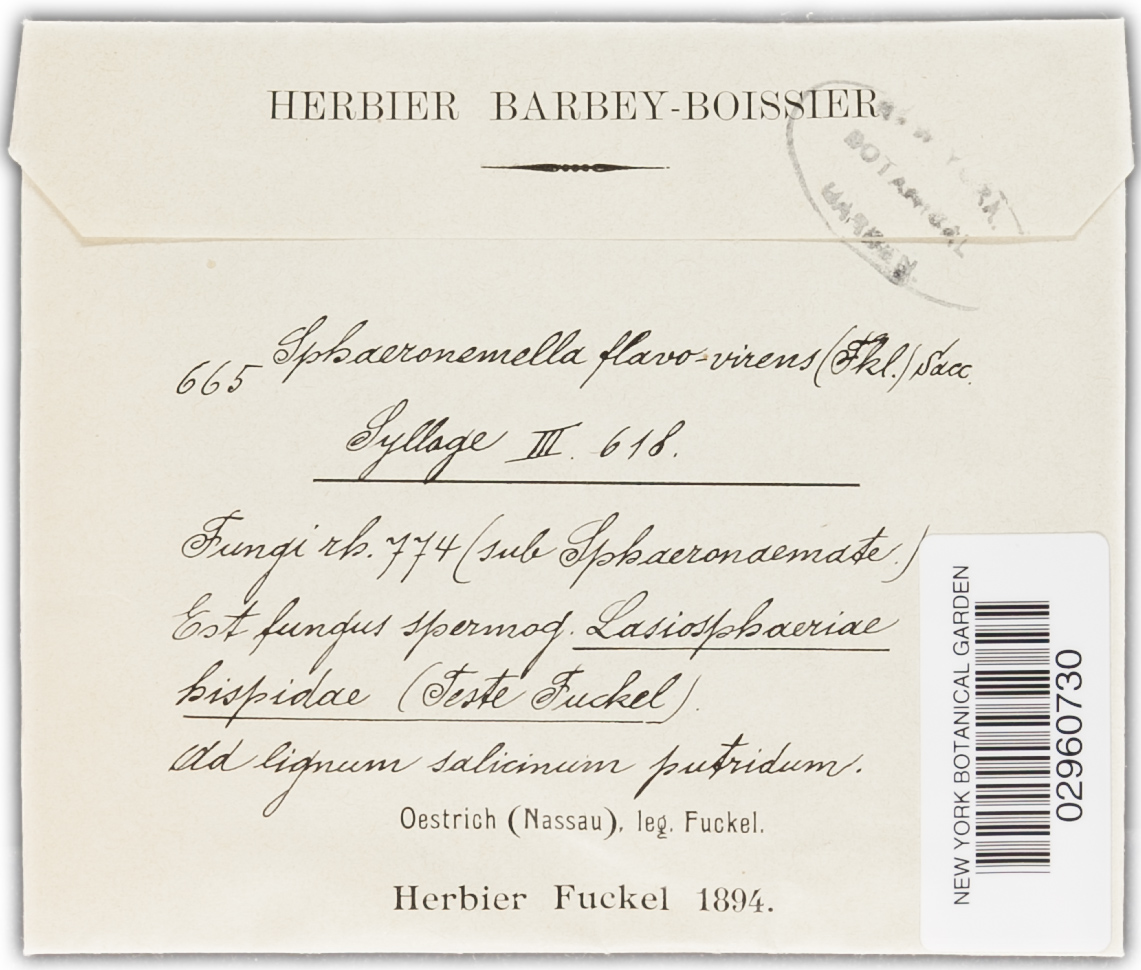 HERBIER BARBEY-BOISSIER
NEW YORK
BOTANICAL
GARDEN
665 Sphaeronemella flavo-virens (Fkl.) Sacc.
Sylloge III. 618.
Fungi rh. 774 (sub Sphaeronaemate.)
Est fungus spermog. Lasiosphaeriae
hispidae (Teste Fuckel).
Ad lignum salicinum putridum.
Oestrich (Nassau), leg. Fuckel.
Herbier Fuckel 1894.
NEW YORK BOTANICAL GARDEN
02960730